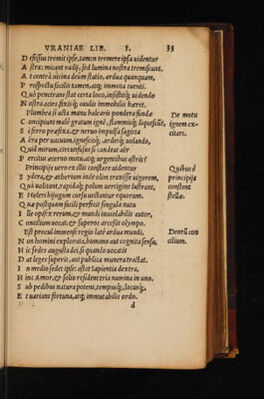 VRANIAE LIB. I. 35
D efissus tremit ipse, tamen tremere ipsa uidentur
A stra: micant radij, sed lumina nostra tremiscunt.
A t contrà oiscina deûm statio, ardua quanquam,
P rospectu facilis tamen, atq; immota tuenti.
Q uò penetrans stat certa loco, insistitq; uidendo
N ostra acies fixisq; oculis immobilis hæret.
Plumbea si acta manu balearic pondera funda
C oncipiunt malè gratum ignē, flammisq; liquescūt,
S i ferro præfixa, et neruo impulsa sagitta
A era per uacuum, ignescitq;, ardetq; uolando,
Quid mirum, circunfusus si candeat aër
P ercitus æterno motu, atq; urgentibus astris?
De motu
ignem ex-
citari.
Principijs uero ex illis constare uidentur
S ydera, et ætherium inde olim traxisse uigorem,
Quæ uolitant, rapidaq; polum uertigine lustrant,
E t celeri bijugum cursu uectantur equorum.
Quæ postquam facili perfecit singula nutu
I lle opifex rerum, et mundi inuiolabilis autor,
C oncilium uocat, et superos arcessit olympo.
Quibus è
principijs
constent
stellæ.
Est procul immensi regio latè ardua mundi,
N on homini explorata, humano aut cognita sensu,
H ic sedes augusta dei, si quando uocatis
D at leges superis, aut publica munera tractat.
I n medio sedet ipse: astat Sapientia dextra,
H inc Amor, et solio resident tria numina in uno.
S ub pedibus natura potens, tempusq;, locusq;,
E t uarians fortuna, atq; immutabilis ordo.
Deorū con
cilium.
d